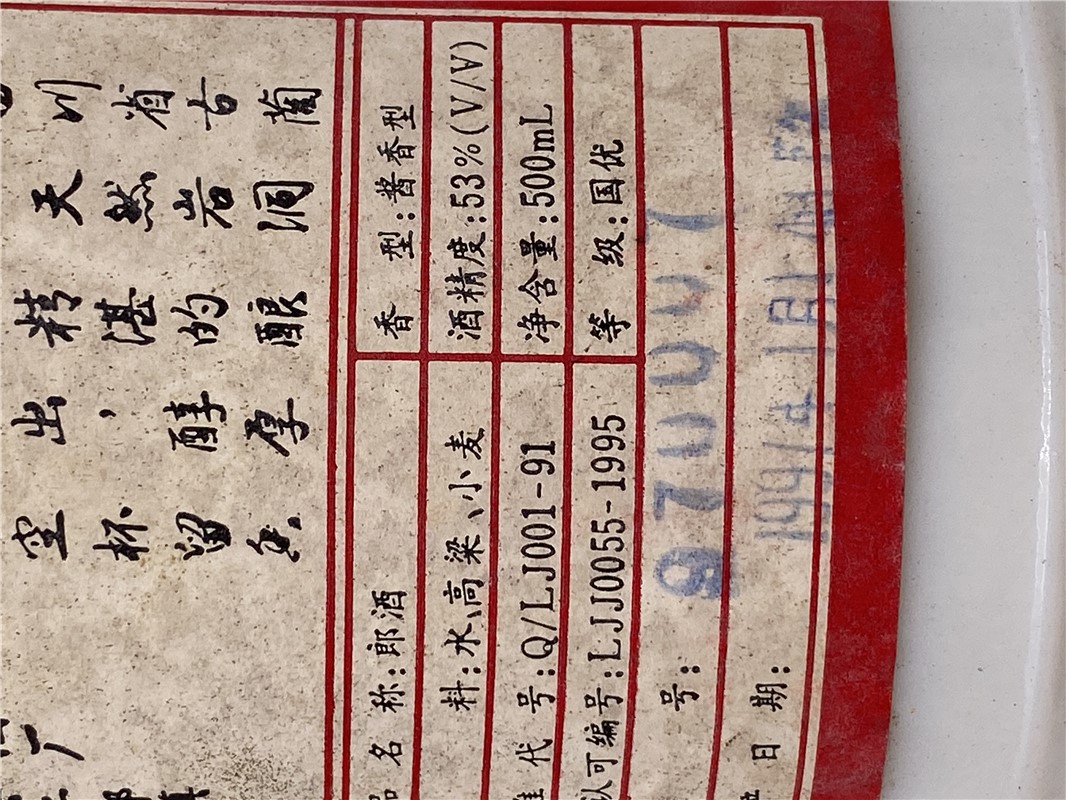 川省古蔺
天然岩洞
精湛的酿
出，醇厚
空杯留香
厂
品名称:郎酒 香型:酱香型
料:水、高粱、小麦 酒精度:53%(V/V)
准代号:Q/LJ001-91 净含量:500mL
认可编号:LJJ0055-1995 等级:国优
号: 970007
日期: 1997年1月